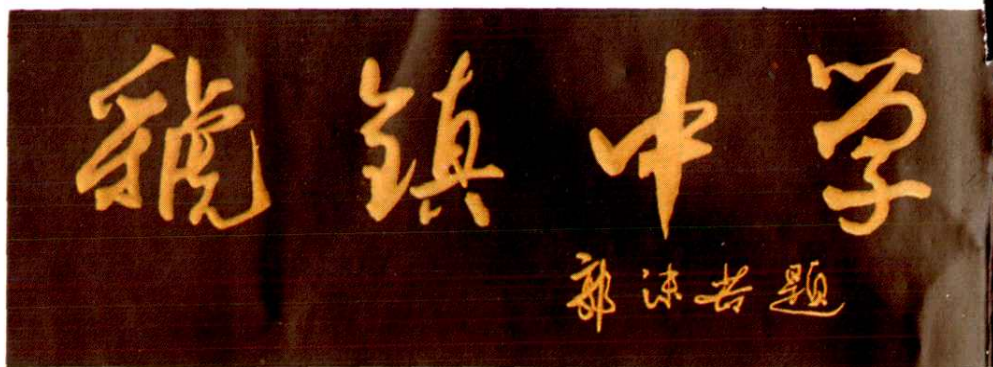 虢镇中学
郭沫若题